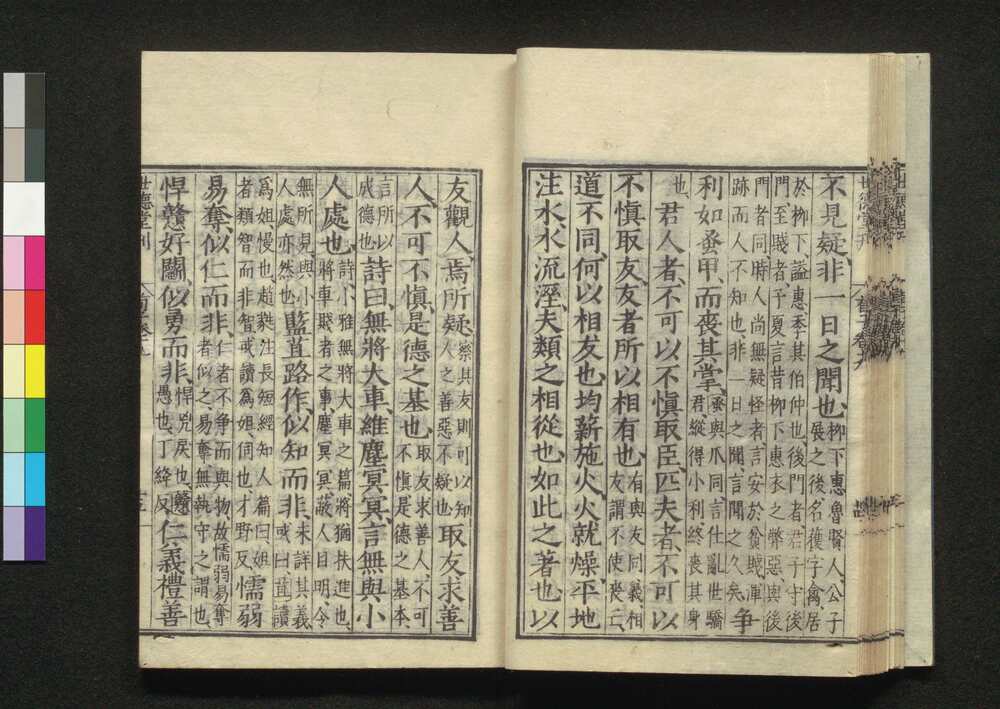 不見疑、非一日之聞也、
柳下惠魯賢人、公子
展之後、名獲字禽、居
於柳下、謚惠、季其伯仲也、後門者、君子守後
門、至賤者、子夏言昔柳下惠衣之弊惡、與後
門者同、時人尚無疑怪者、言安於貧賤、渾
跡而人不知也、非一日之聞、言聞之久矣、
爭
利如蚤甲、而喪其掌、
蚤與爪同、言仕亂世驕
君、縱得小利、終喪其身
也、
君人者、不可以不慎取臣、匹夫者、不可以
不慎取友、友者所以相有也、
有與友同義、相
友謂不使喪亡、
道不同、何以相友也、均薪施火、火就燥、平地
注水、水流溼、夫類之相從也、如此之著也、以
友觀人、焉所疑、
察其友則可以知
人之善惡不疑也
取友求善
人、不可不慎、是德之基也、
取友求善人、不可
不慎、是德之基本、
言所以
成德也
詩曰無將大車、維塵冥冥、言無與小
人處也、
詩小雅無將大車之篇、將猶扶進也、
將車賤者之事、塵冥冥、蔽人目明、令
無所見、與小
人處亦然也、
藍苴路作、似知而非、
未詳其義、
或曰苴讀
爲姐、慢也、趙蕤注長短經知人篇曰、姐
者類智而非智、或讀爲姐、伺也、才野反、
懦弱
易奪、似仁而非、
仁者不争而與物、故懦弱易奪
者似之、易奪、無執守之謂也、
悍戇好鬭、似勇而非、
悍兇戾也、戇
愚也、丁絳反、
仁義禮善
世德堂刊